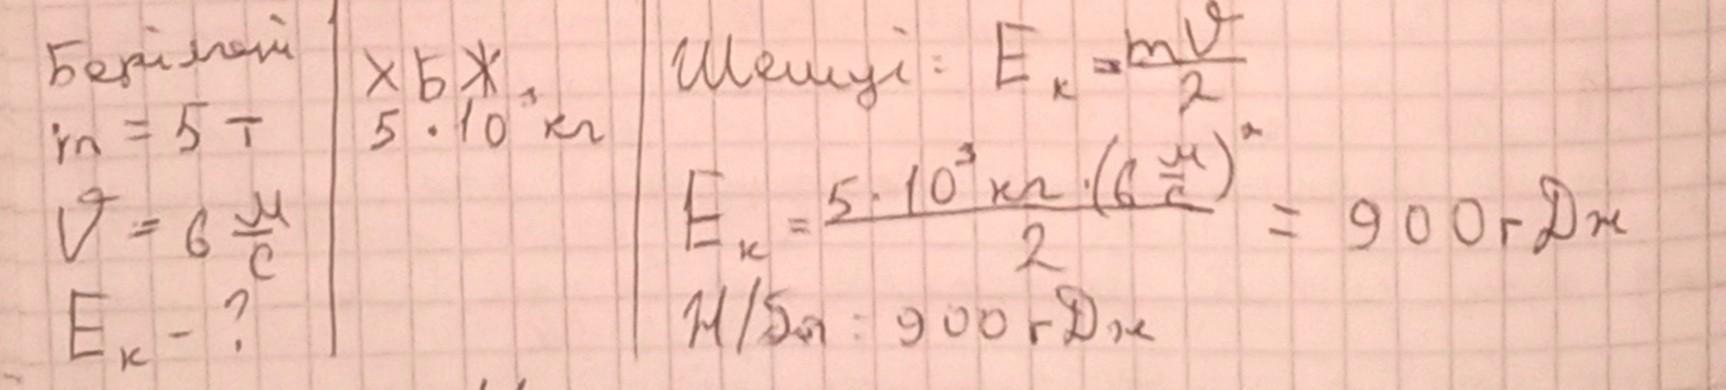 Берілгені
m = 5 т
υ = 6 м/с
Eк - ?
ХБЖ
5 · 10³ кг
Шешуі: Eк = mυ/2
Eк = 5 · 10³ кг · (6 м/с)² / 2 = 900гДж
Ж/бы: 900гДж